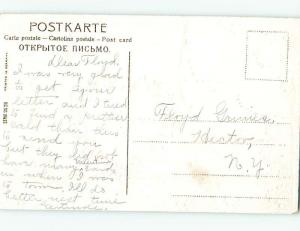 POSTKARTE
Carte postale – Cartolina postale – Post card
ОТКРЫТОЕ ПИСЬМО.
Dear Floyd,
I was very glad
to get your
letter and I tried
to find a prettier
card than this
to send you
but they did not
have many cards
in when I was
to town, I'll do
better next time
Gertrude.
Floyd
Hector,
N.Y.